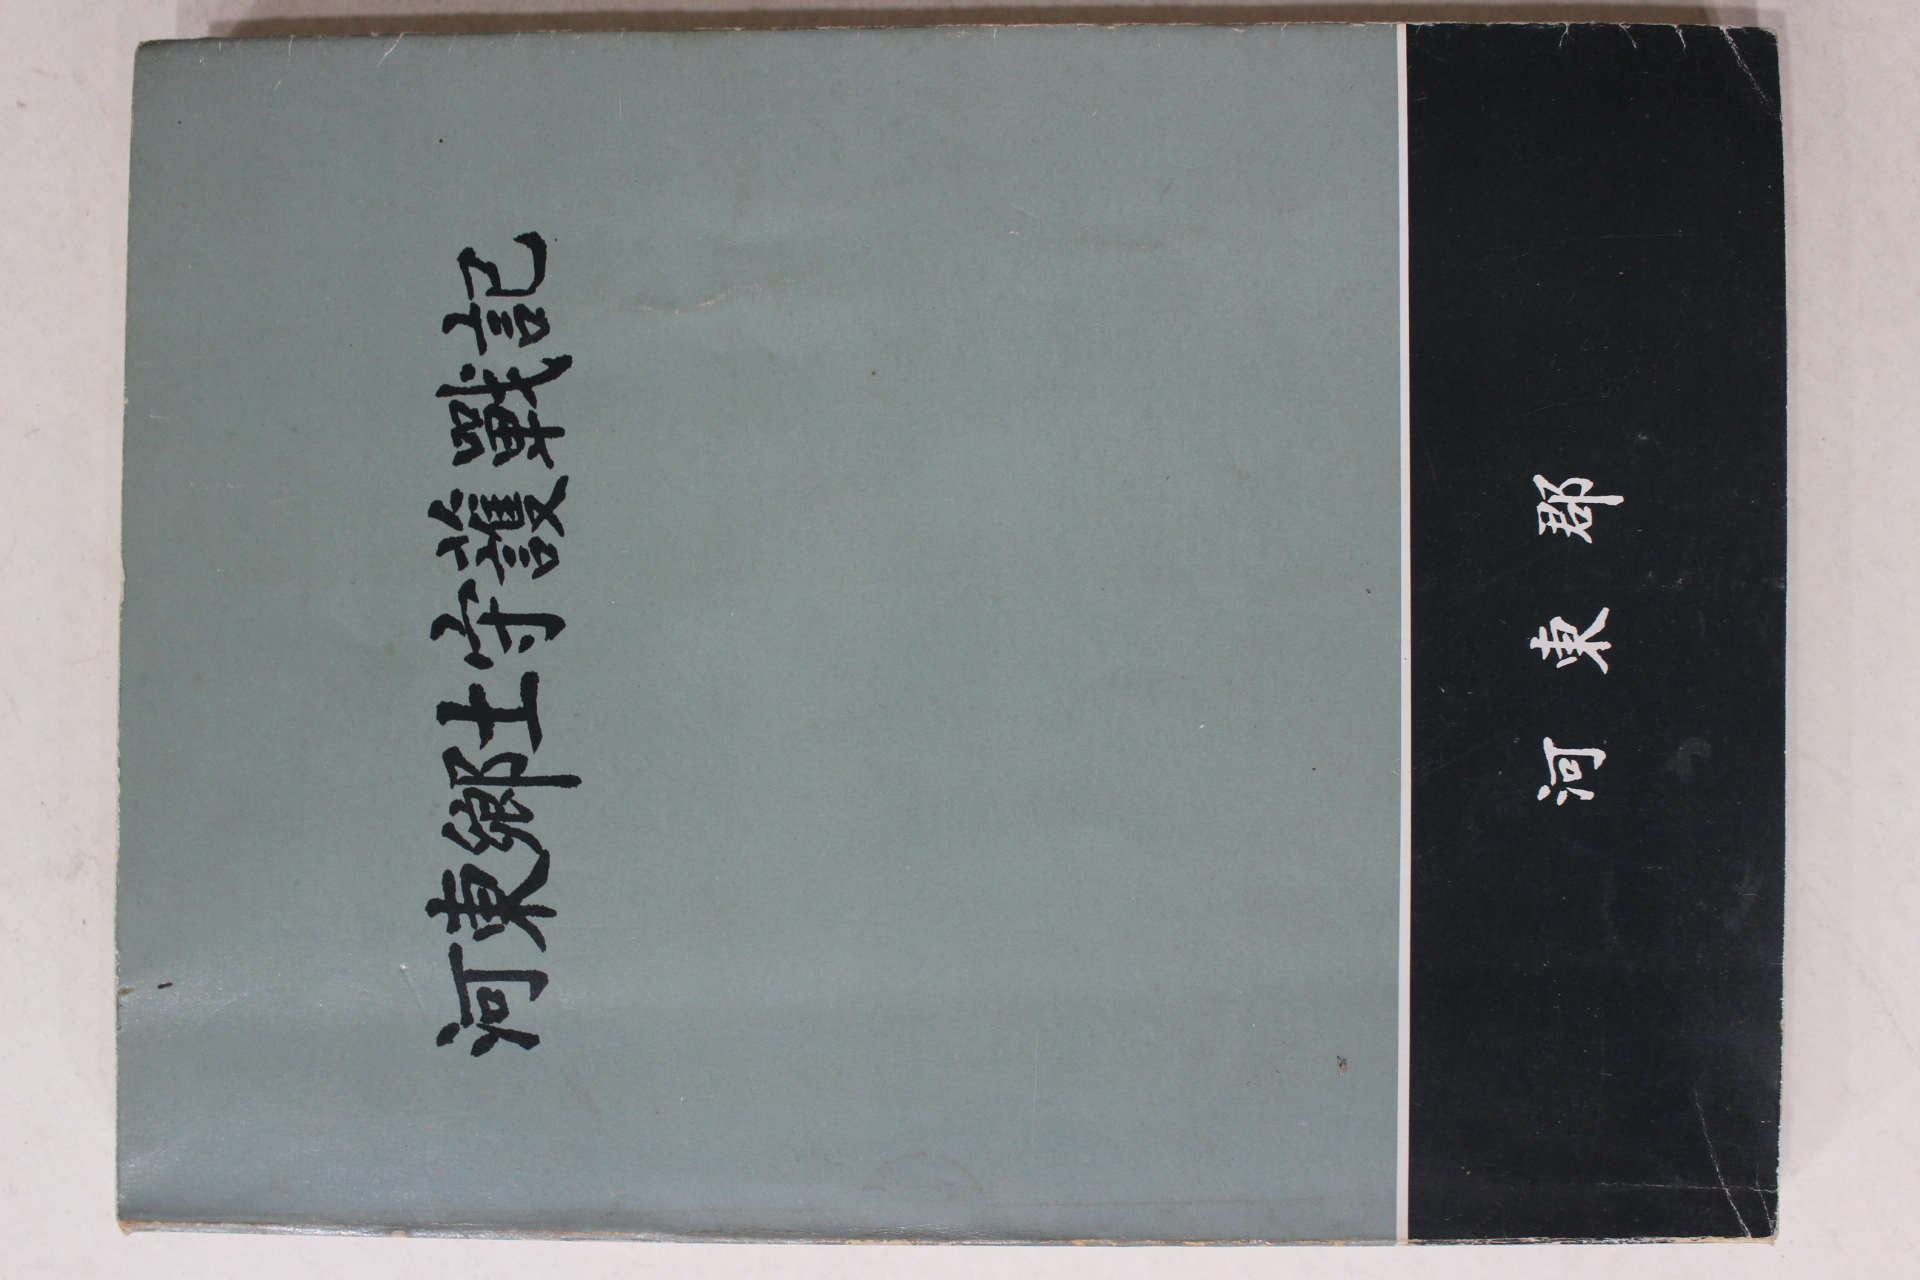 河東鄕土守護戰記
河東郡